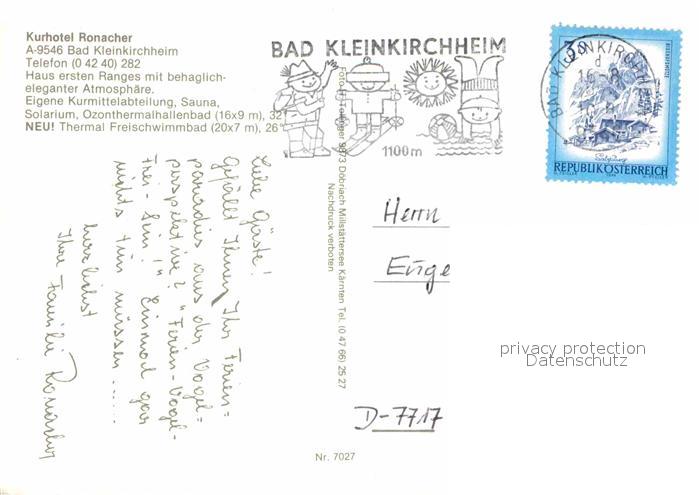 Kurhotel Ronacher
A-9546 Bad Kleinkirchheim
Telefon (0 42 40) 282
Haus ersten Ranges mit behaglich-
eleganter Atmosphäre.
Eigene Kurmittelabteilung, Sauna,
Solarium, Ozonthermalhallenbad (16x9 m), 32°
NEU! Thermal Freischwimmbad (20x7 m), 26°
BAD KLEINKIRCHHEIM
1100m
BAD KLEINKIRCHHEIM
3s
REPUBLIK ÖSTERREICH
Liebe Gäste!
Gefällt Ihnen Ihr Ferien=
paradies aus der Vogel=
perspektive? "Ferien-Vogel-
frei-Sein!" Einmal gar
nichts tun müssen ......
herzlichst
Ihre Familie Ronacher
9873 Döbriach Millstättersee Kärnten Tel. (0 47 66) 25 27
Nachdruck verboten
Herrn
Euge
D-7717
Nr. 7027
privacy protection
Datenschutz